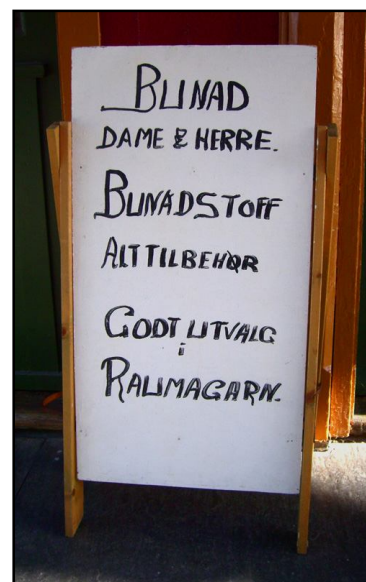 BUNAD
DAME & HERRE.
BUNADSTOFF
ALT TILBEHØR
GODT UTVALG
i
RAUMAGARN.